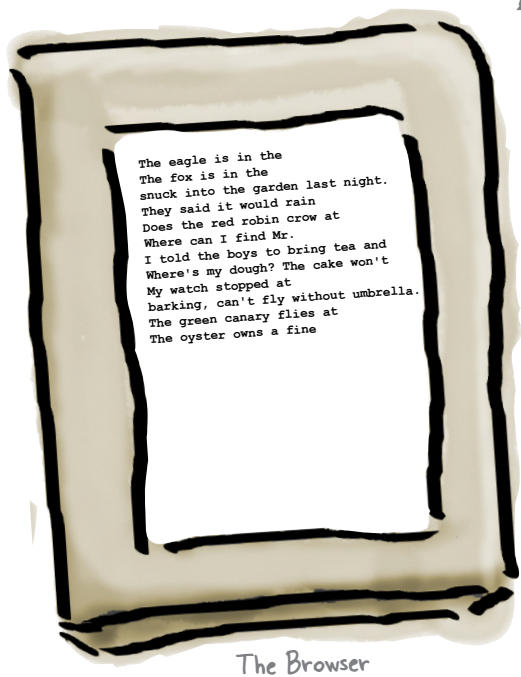 The eagle is in the
The fox is in the
snuck into the garden last night.
They said it would rain
Does the red robin crow at
Where can I find Mr.
I told the boys to bring tea and
Where's my dough? The cake won't
My watch stopped at
barking, can't fly without umbrella.
The green canary flies at
The oyster owns a fine
The Browser